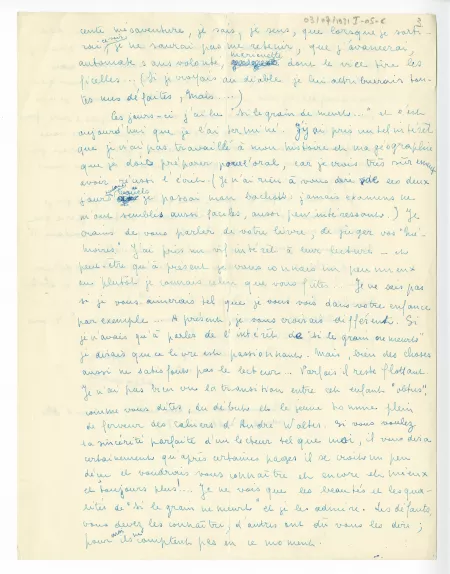 03/07/1931 I-05-C
2
cente mésaventure, je sais, je sens, que lorsque je sorti-
rai, je ne saurai pas me retenir, que j'avancerai,
automate sans volonté, marionnette donc le vice tire les
ficelles... (Si je croyais au diable je lui attribuerais tou-
tes mes défaites, mais....)
Ces jours-ci j'ai lu "Si le grain ne meurt..." et c'est
aujourd'hui que je l'ai terminé. J'y ai pris un tel intérêt
que je n'ai pas travaillé à mon histoire et ma géographie
que je dois préparer pour l'oral, car je crois très sûrement
avoir réussi l'écrit. (Je n'ai rien à vous dire de ces deux
jours auxquels je passai mon bachot : jamais examens ne
m'ont semblés aussi faciles, aussi peu intéressants.) Je
crains de vous parler de votre livre, de juger vos "mé-
moires". J'ai pris un vif intérêt à leur lecture — et
peut-être qu'à présent je vous connais un peu mieux
ou plutôt je connais celui que vous fûtes. Je ne sais pas
si je vous aimerais tel que je vous vois dans votre enfance
par exemple.... A présent, je vous croirais différent. Si
je n'avais qu'à parler de l'intérêt de "si le grain ne meurt"
je dirais que ce livre est passionnant. Mais, bien des choses
aussi ne satisfont pas le lecteur... Parfois il reste flottant.
Je n'ai pas bien vu la transition entre cet enfant "obtus",
comme vous dites, du début et le jeune homme plein
de ferveur des cahiers d'André Walter. Si vous voulez
la sincérité parfaite d'un lecteur tel que moi, il vous dira
certainement qu'après certaines pages il se trouve un peu
déçu et voudrait vous connaître et encore et mieux
et toujours plus!... Je ne vois que les beautés et les qua-
lités de "Si le grain ne meurt" et je les admire. Les défauts,
vous devez les connaître, d'autres ont dû vous les dire ;
pour moi ils ne comptent pas en ce moment.